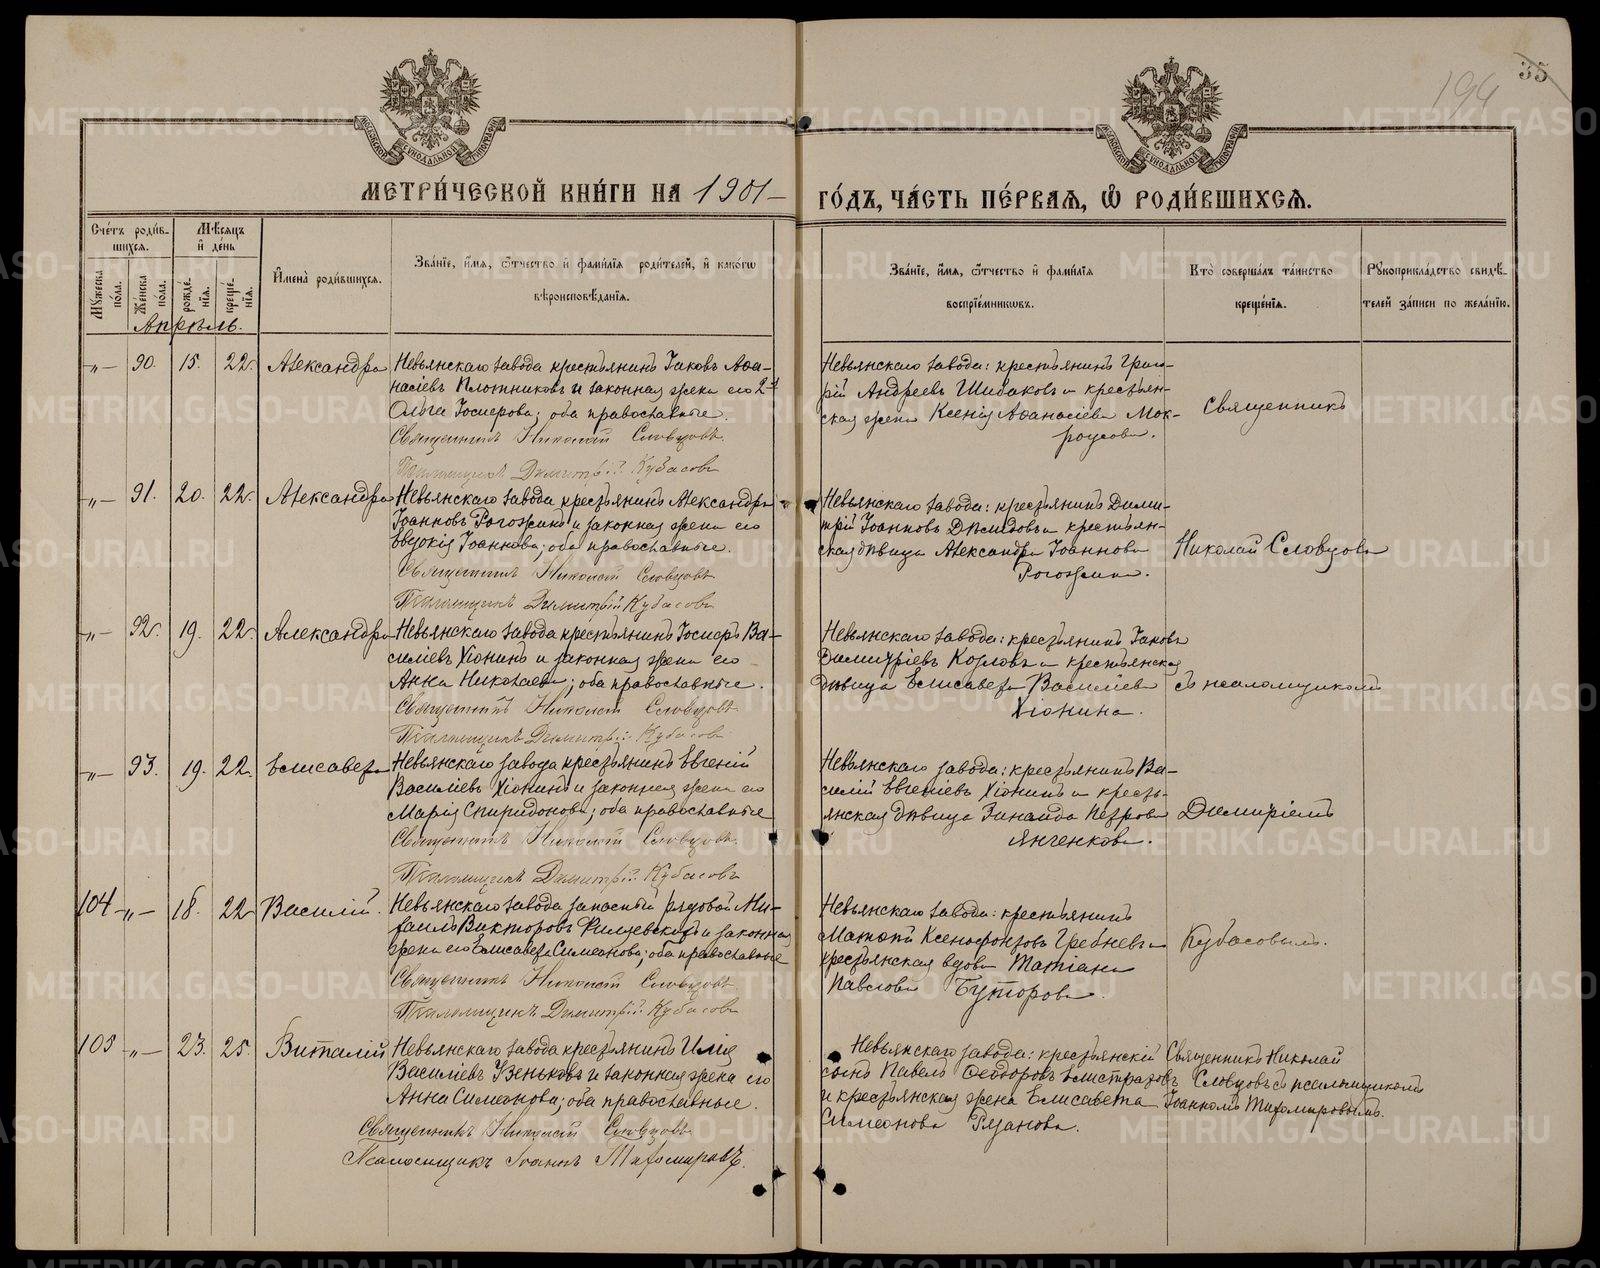 194
35
МЕТРИ́ЧЕСКОЙ КНИ́ГИ НА 1901
ГО́ДЪ, ЧА́СТЬ ПЕ́РВАЯ, Ѿ РОДИ́ВШИХСЯ.
Сче́тъ роди́вшихся.
Мѣсяцъ и де́нь
Мужеска по́ла.
Же́нска по́ла.
рожде́нія.
креще́нія.
Имена̀ роди́вшихся.
Зва́ніе, и́мя, ѻ́тчество и фами́лія роди́телей, и како́гѡ
вѣроисповѣ́данія.
Зва́ніе, и́мя, ѻ́тчество и фами́лія
воспріе́мниковъ.
Кто̀ соверша́лъ та́инство
креще́нія.
Рукоприкла́дство свидѣ́-
телей за́писи по жела́нію.
Апрѣль.
-„- 90. 15. 22. Александра
Невьянскаго завода крестьянинъ Іаковъ Аѳа-
насіевъ Плотниковъ и законная жена его 2я
Ольга Іосифова; оба православные.
Священникъ Николай Словцовъ
Псаломщикъ Димитрій Кубасовъ
Невьянскаго завода: крестьянинъ Григо-
рій Андреевъ Шибаковъ и крестьян-
ская жена Ксенія Аѳанасіева Мок-
роусова.
Священникъ
-„- 91. 20. 22. Александра
Невьянскаго завода крестьянинъ Александръ
Іоанновъ Рогожинъ и законная жена его
Евдокія Іоаннова; оба православные.
Священникъ Николай Словцовъ
Псаломщикъ Димитрій Кубасовъ
Невьянскаго завода: крестьянинъ Дими-
трій Іоанновъ Дѣмидовъ и крестьян-
ская дѣвица Александра Іоаннова
Рогожина.
Николай Словцовъ
-„- 92. 19. 22. Александра
Невьянскаго завода крестьянинъ Іосифъ Ва-
силіевъ Хіонинъ и законная жена его
Анна Николаева; оба православные.
Священникъ Николай Словцовъ
Псаломщикъ Димитрій Кубасовъ
Невьянскаго завода: крестьянинъ Іаковъ
Димитріевъ Козловъ и крестьянская
дѣвица Елисавета Василіева
Хіонина.
съ псаломщикомъ
-„- 93. 19. 22. Елисавета
Невьянскаго завода крестьянинъ Евгеній
Василіевъ Хіонинъ и законная жена его
Марія Спиридонова; оба православные
Священникъ Николай Словцовъ.
Псаломщикъ Димитрій Кубасовъ
Невьянскаго завода: крестьянинъ Ва-
силій Евгеніевъ Хіонинъ и кресть-
янская дѣвица Зинаида Петрова
Янченкова.
Димитріемъ
104 -„- 18. 22 Василій.
Невьянскаго завода запасный рядовой Ми-
хаилъ Викторовъ и законная
жена его Елисавета Симеонова; оба православные
Священникъ Николай Словцовъ
Псаломщикъ Димитрій Кубасовъ
Невьянскаго завода: крестьянинъ
Ксенофонтовъ Гребневъ и
крестьянская вдова Татіана
Павлова Буторова.
Кубасовымъ.
105 -„- 23. 25. Виталій
Невьянскаго завода крестьянинъ Илія
Василіевъ Узеньковъ и законная жена его
Анна Симеонова; оба православные.
Священникъ Николай Словцовъ
Псаломщикъ Іоаннъ Тихомировъ.
Невьянскаго завода: крестьянскій
сынъ Павелъ Ѳеодоровъ Елистратовъ
и крестьянская жена Елисавета
Симеонова Рязанова.
Священникъ Николай
Словцовъ съ псаломщикомъ
Іоанномъ Тихомировымъ.